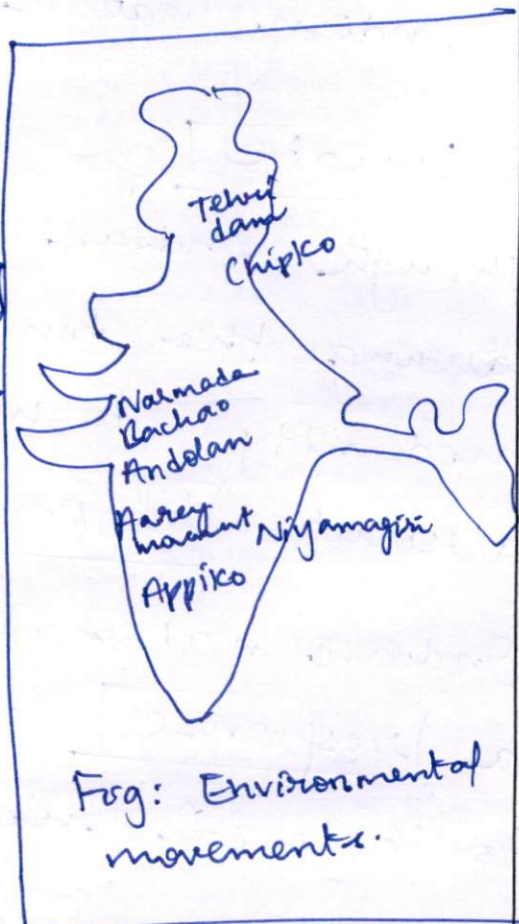 Tehri
dam
Chipko
Narmada
Bachao
Andolan
Aarey
movement
Niyamagiri
Appiko
Fig: Environmental
movements.